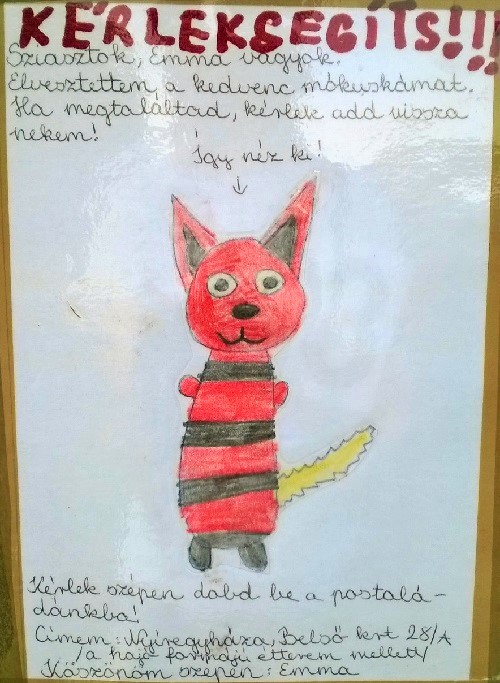 KÉRLEKSEGÍTS!!!
Sziasztok, Emma vagyok.
Elvesztettem a kedvenc mókuskámat.
Ha megtaláltad, kérlek add vissza
nekem!
Így néz ki!
↓
Kérlek szépen dobd be a postalá-
dánkba!
Címem: Nyíregyháza, Belső krt 28/A
/a hajó formájú étterem mellett/
Köszönöm szépen: Emma